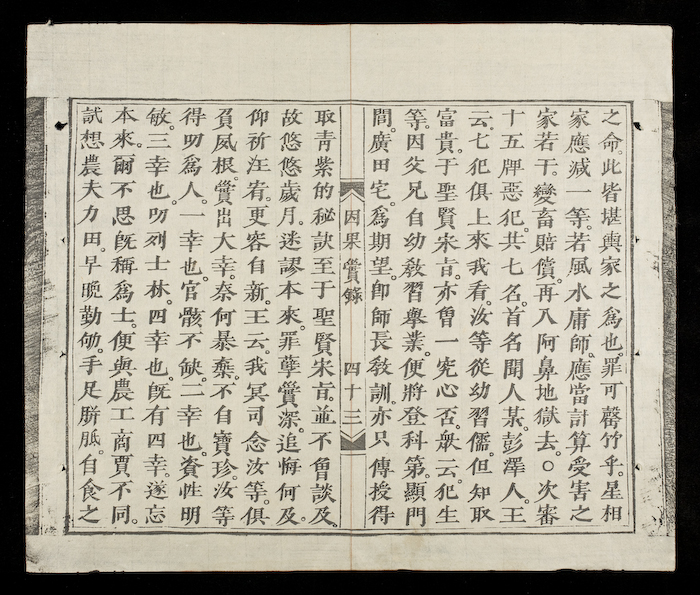 之命。此皆堪輿家之爲也。罪可罄竹乎。星相
家應減一等。若風水庸師。應當計算受害之
家若干。變畜賠償。再入阿鼻地獄去。○次審
十五牌惡犯。共七名。首名聞人某。彭澤人。王
云。七犯俱上來我看。汝等從幼習儒。但知取
富貴。于聖賢宋旨。亦曾一究心否。衆云。犯生
等。因父兄自幼敎習舉業。便將登科第。顯門
閭。廣田宅。爲期望。卽師長敎訓亦只傳授得
因果實錄 四十三
取青紫的秘訣至于聖賢宋旨。並不曾談及。
故悠悠歲月。迷謬本來。罪孽實深。追悔何及。
仰祈汪宥。更容自新。王云。我冥司念汝等。俱
負夙根。實出大幸。奈何暴棄。不自寶珍。汝等
得叨爲人。一幸也。官骸不缺。二幸也。資性明
敏。三幸也。叨列士林。四幸也。旣有四幸。遂忘
本來。爾不思旣稱爲士。便與農工商賈不同。
試想農夫力田。早晚勤劬。手足胼胝。自食之